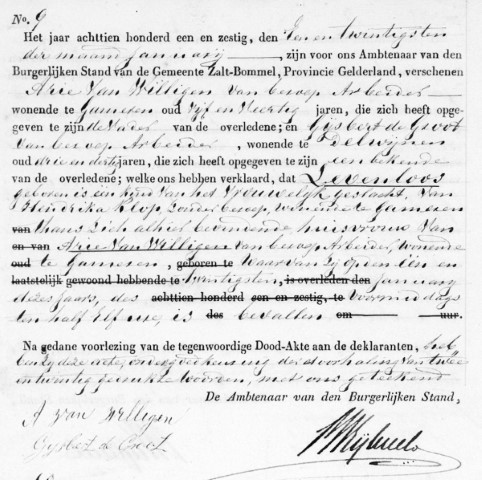 No. 9
Het jaar achttien honderd een en zestig, den Een en twintigsten
der maand januarij, zijn voor ons Ambtenaar van den
Burgerlijken Stand van de Gemeente Zalt-Bommel, Provincie Gelderland, verschenen
Arie van Willigen van beroep Arbeider
wonende te Gameren oud vijf en veertig jaren, die zich heeft opge-
geven te zijn de vader van de overledene; en Gijsbert de Groot
van beroep Arbeider, wonende te Delwijnen
oud drie en dertig jaren, die zich heeft opgegeven te zijn een bekende
van de overledene; welke ons hebben verklaard, dat Levenloos
geboren is een kind van het vrouwelijk geslacht, van
Hendrika Klop zonder beroep, wonende te Gameren
van thans zich alhier bevindende huisvrouw van
en van Arie van Willigen van beroep Arbeider, wonende
oud te Gameren, geboren te waarvan zij op een en
laatstelijk gewoond hebbende te twintigsten, is overleden den januarij
dezes jaars, des achttien honderd een en zestig, te voormiddags
ten half elf ure, is des bevallen om uur.
Na gedane voorlezing van de tegenwoordige Dood-Akte aan de deklaranten, heb
ben zij deze acte, onder goedkeuring der doorhaling van twee
en twintig gedrukte woorden, met ons geteekend
De Ambtenaar van den Burgerlijken Stand,
A van Willigen
Gijsbert de Groot